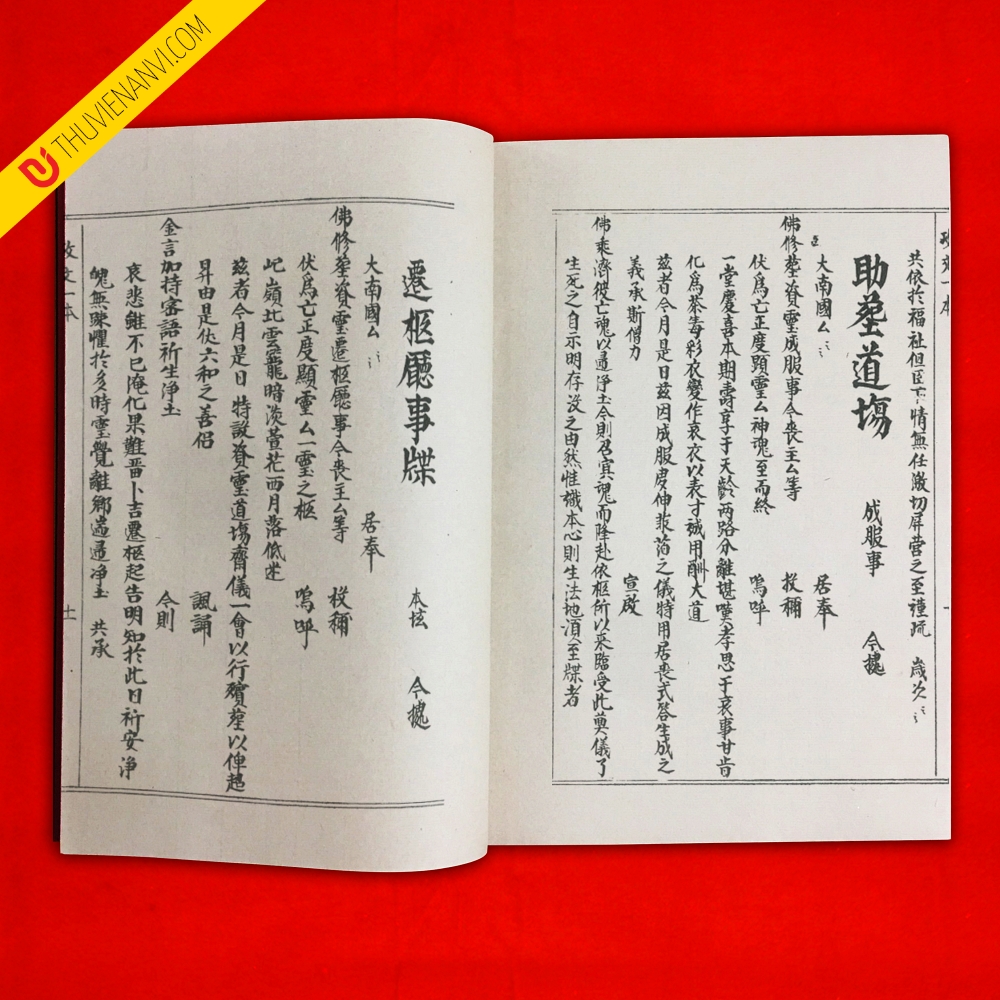 THUVIENANVI.COM
共依於福祉但臣下情無任激切屏营之至謹疏 歲次
助塟道塲 成服事 今據
大南國厶 居奉
佛修塟資靈成服事今喪主厶等 投稱
伏為亡正度顕靈厶神魂至而終 嗚呼
一堂慶喜本期壽享于天齡両路分離堪嘆孝思于哀事甘旨
化為茶毒彩衣變作哀衣以表寸誠用酬大道
兹者今月是日兹因成服虔伸菲萡之儀特用居喪式答生成之
義承斯僧力 宣啟
佛乘濟彼亡魂以通净土今則召宾魂而降赴依柩所以来臨受此奠儀了
生死之自示明存没之由然惟識本心則生法地湏至牒者
遷柩廳事牒 本坛 今據
大南國厶 居奉
佛修塟資靈遷柩廳事今喪主厶等 投稱
伏為亡正度顯靈厶一靈之柩 嗚呼
屺嶺北雲籠暗淡萱花西月落低迷
兹者今月是日特設資靈道塲齋儀一會以行殯塟以俥超
昇由是伏六和之善侣 諷誦
金言加持密語祈生净土 今則
哀悲雖不已淹化果難畱卜吉遷柩起告明知於此日祈安净
魄無陳懼於多時靈覺離鄉遄通净土 共承